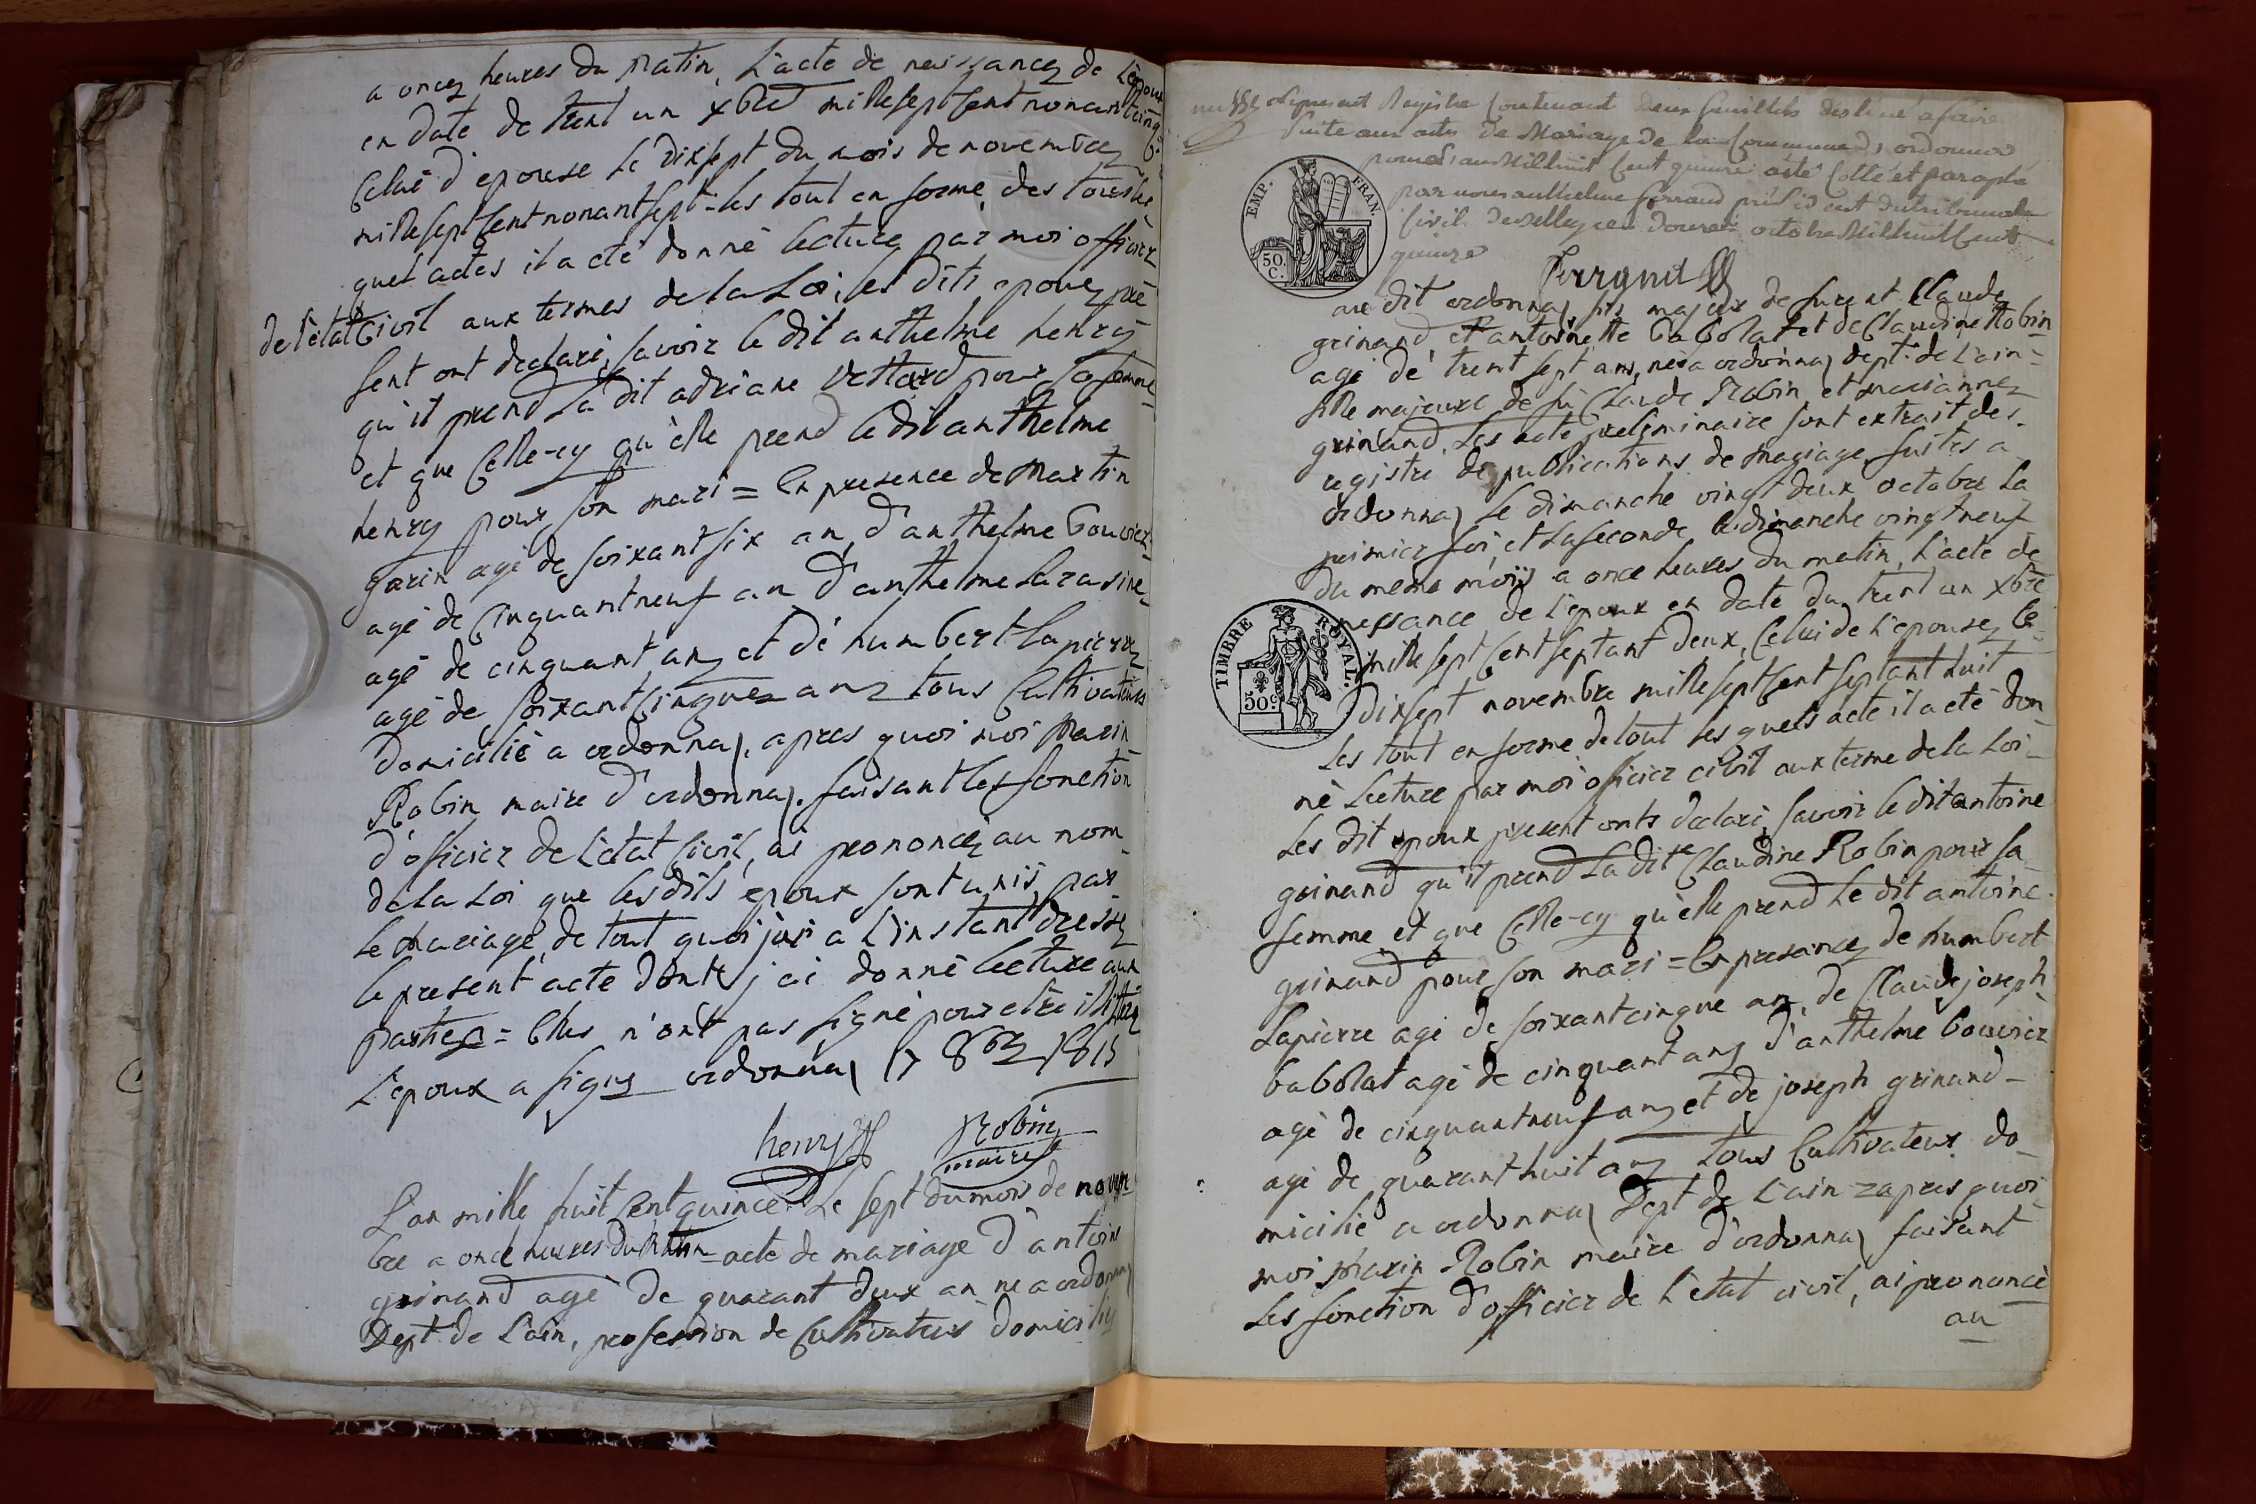 a oncez heures du matin, L'acte de naissancez de L'epoux
en date de trent un xbre mille sept sent nonant cinq
Celui d'epouse Le dix sept du mois de novembrez
mille sept sent nonant sept - les tout en forme, des tout les
quel actes il a eté donné lecturez par moi officier
de l'état Civil aux termes de la Loi, les dits epouez pré
sent ont declaré, savoir le dit anthelme henry
qu'il prend La dit adriane Vettard pour sa femme
et que Celle-cy qu'elle prend le dit anthelme
henry pour son mari = En presence de Martin
garin agé de soixant six an, d'anthelme bouvier
agé de Cinquant neuf an d'anthelme Sarasine
agé de cinquant anz et de humbert Lapierrez
agé de soixant Cinquez anz tous Cultivateurs
domicilié a ordonnaz, apres quoi moi Marin
Robin maire d'ordonnaz, faisant les fonction
d'oficier de L'état Civil, ai prononcez au nom
de La Loi que les dits epoux sont uniis par
le Mariage, de tout quoi j'ai a L'instant dressez
le present acte dont j'ai donné lecture aux
parties = Elles n'ont pas signé pour etre illitérez
L'epoux a signez ordonnaz 17 8bre 1815
henry Robin
maire
L'an mille huit Cent quince Le sept du mois de novem
bre a once heures du Matin - acte de mariage d'antoine
grinand agé de quarant deux an né a ordonnaz
Dept de L'ain, profession de Cultivateur domicilié
Le present Registre Contenant deux feuillets destiné a faire
suite aux actes de Mariage de la Commune d'ordonnaz
pour l'an Mil huit Cent quinze a été Cotté et paraphé
par nous anthelme ferrand président du tribunal
Civil de Belley ce douze octobre Mil huit Cent
quinze
Ferrand
EMP. FRAN.
50.
C.
au dit ordonnaz, fils majeur de furent Claude
grinand et antoinette babolat et de Claudine Robin
agé de trent sept ans, née a ordonnaz dept. de L'ain
fille majeure de fu Claude Robin et mariannez
grinand. Les acte preliminaire sont extrait des
registre de publications de mariage faites a
ordonnaz Le dimanche vingt deux octobre La
primier foi, et La seconde le dimanche vingt neuf
du meme mois a once heures du matin, L'acte de
naissance de l'epoux en date du trent un xbre
mille sept Cent septant deux, Celui de L'epousez le
TIMBRE ROYAL.
50c.
Dix sept novembre mille sept Cent septant huit
Les tout en forme de tout les quels acte il a eté don
né Lecture par moi oficier civil aux terme de la Loi
Les dit epoux present onts declaré, savoir le dit antoine
grinand qu'il prend La dite Claudine Robin pour sa
femme et que Celle-cy qu'elle prend Le dit antoine
grinand pour son mari = En presancez de humbert
Lapierre agé de soixant cinque an, de Claude joseph
babolat agé de cinquant anz d'anthelme bouvier
agé de cinquant neuf anz et de joseph grinand
agé de quarant huit anz tous Cultivateur do
micilié a ordonnaz Dept de L'ain apres quoi
moi Marin Robin maire d'ordonnaz faisant
Les fonction d'officier de L'état civil, ai prononcé
au